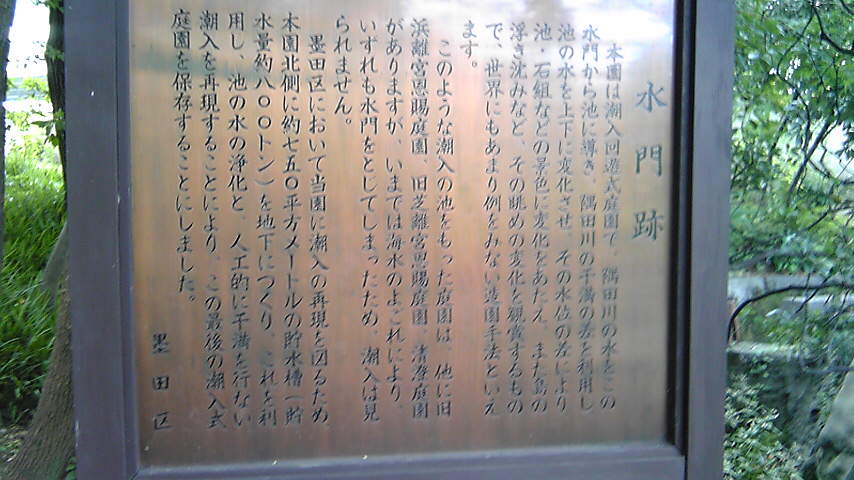 水門跡
本園は潮入回遊式庭園で、隅田川の水をこの
水門から池に導き、隅田川の干満の差を利用し
池の水を上下に変化させ、その水位の差により
池・石組などの景色に変化をあたえ、また島の
浮き沈みなど、その眺めの変化を観賞するもの
で、世界にもあまり例をみない造園手法といえ
ます。
このような潮入の池をもった庭園は、他に旧
浜離宮恩賜庭園、旧芝離宮恩賜庭園、清澄庭園
がありますが、いまでは海水のよごれにより、
いずれも水門をとしてしまったため、潮入は見
られません。
墨田区において当園に潮入の再現を図るため
本園北側に約七五〇平方メートルの貯水槽(貯
水量約八〇〇トン)を地下につくり、これを利
用し、池の水の浄化と、人工的に干満を行ない
潮入を再現することにより、この最後の潮入式
庭園を保存することにしました。
墨田区